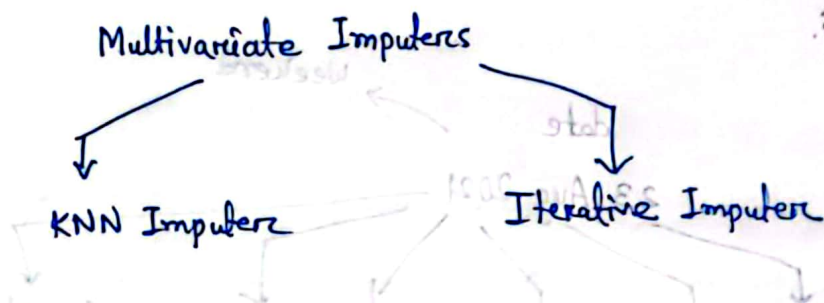 Multivariate Imputers
KNN Imputer
Iterative Imputer